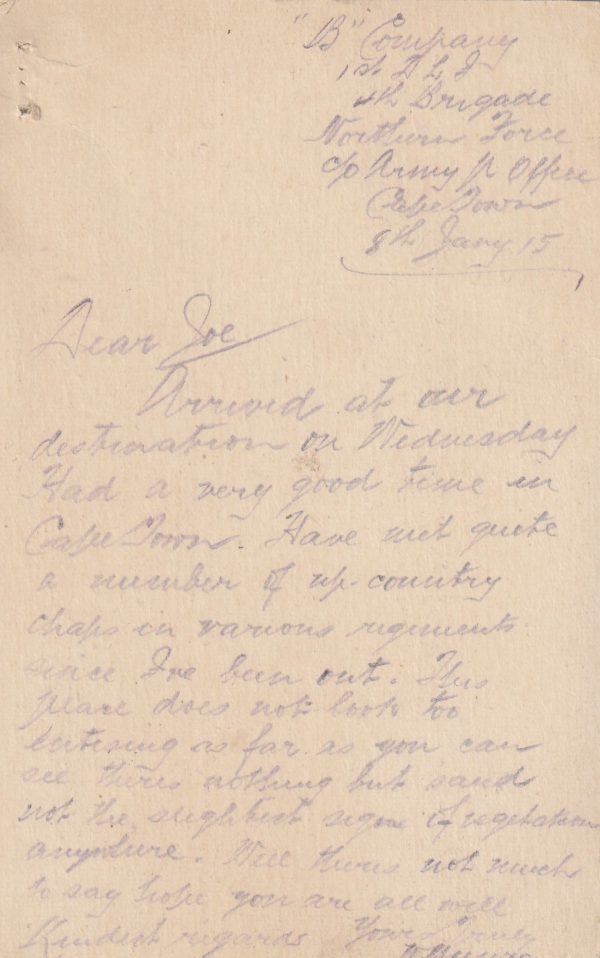 "B" Company
1st D L I
4th Brigade
Northern Force
c/o Army P. Office
Cape Town
8th Jany. 15
Dear Joe
Arrived at our
destination on Wednesday
Had a very good time in
Cape Town. Have met quite
a number of up-country
chaps in various regiments
since I've been out. This
place does not look too
enticing as far as you can
see theres nothing but sand
not the slightest sign of vegetation
anywhere. Well theres not much
to say hope you are all well
Kindest regards Yours